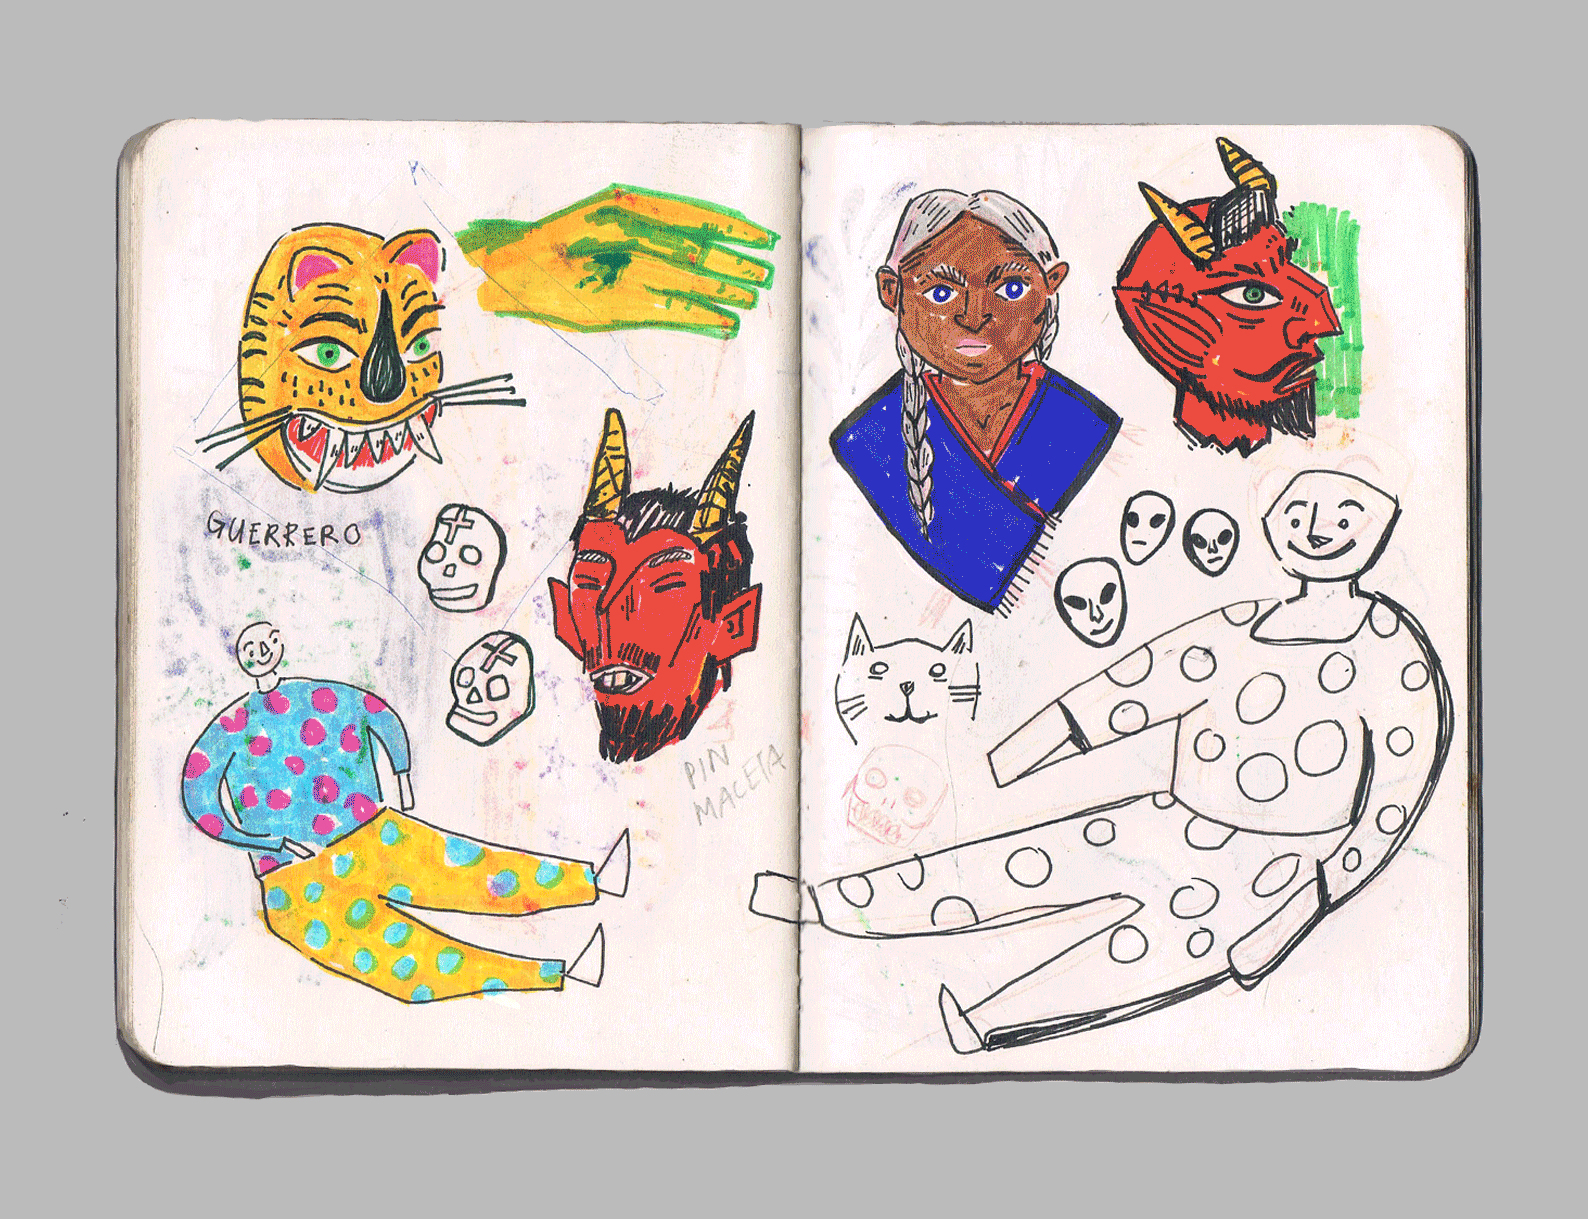 GUERRERO
PIN
MACETA